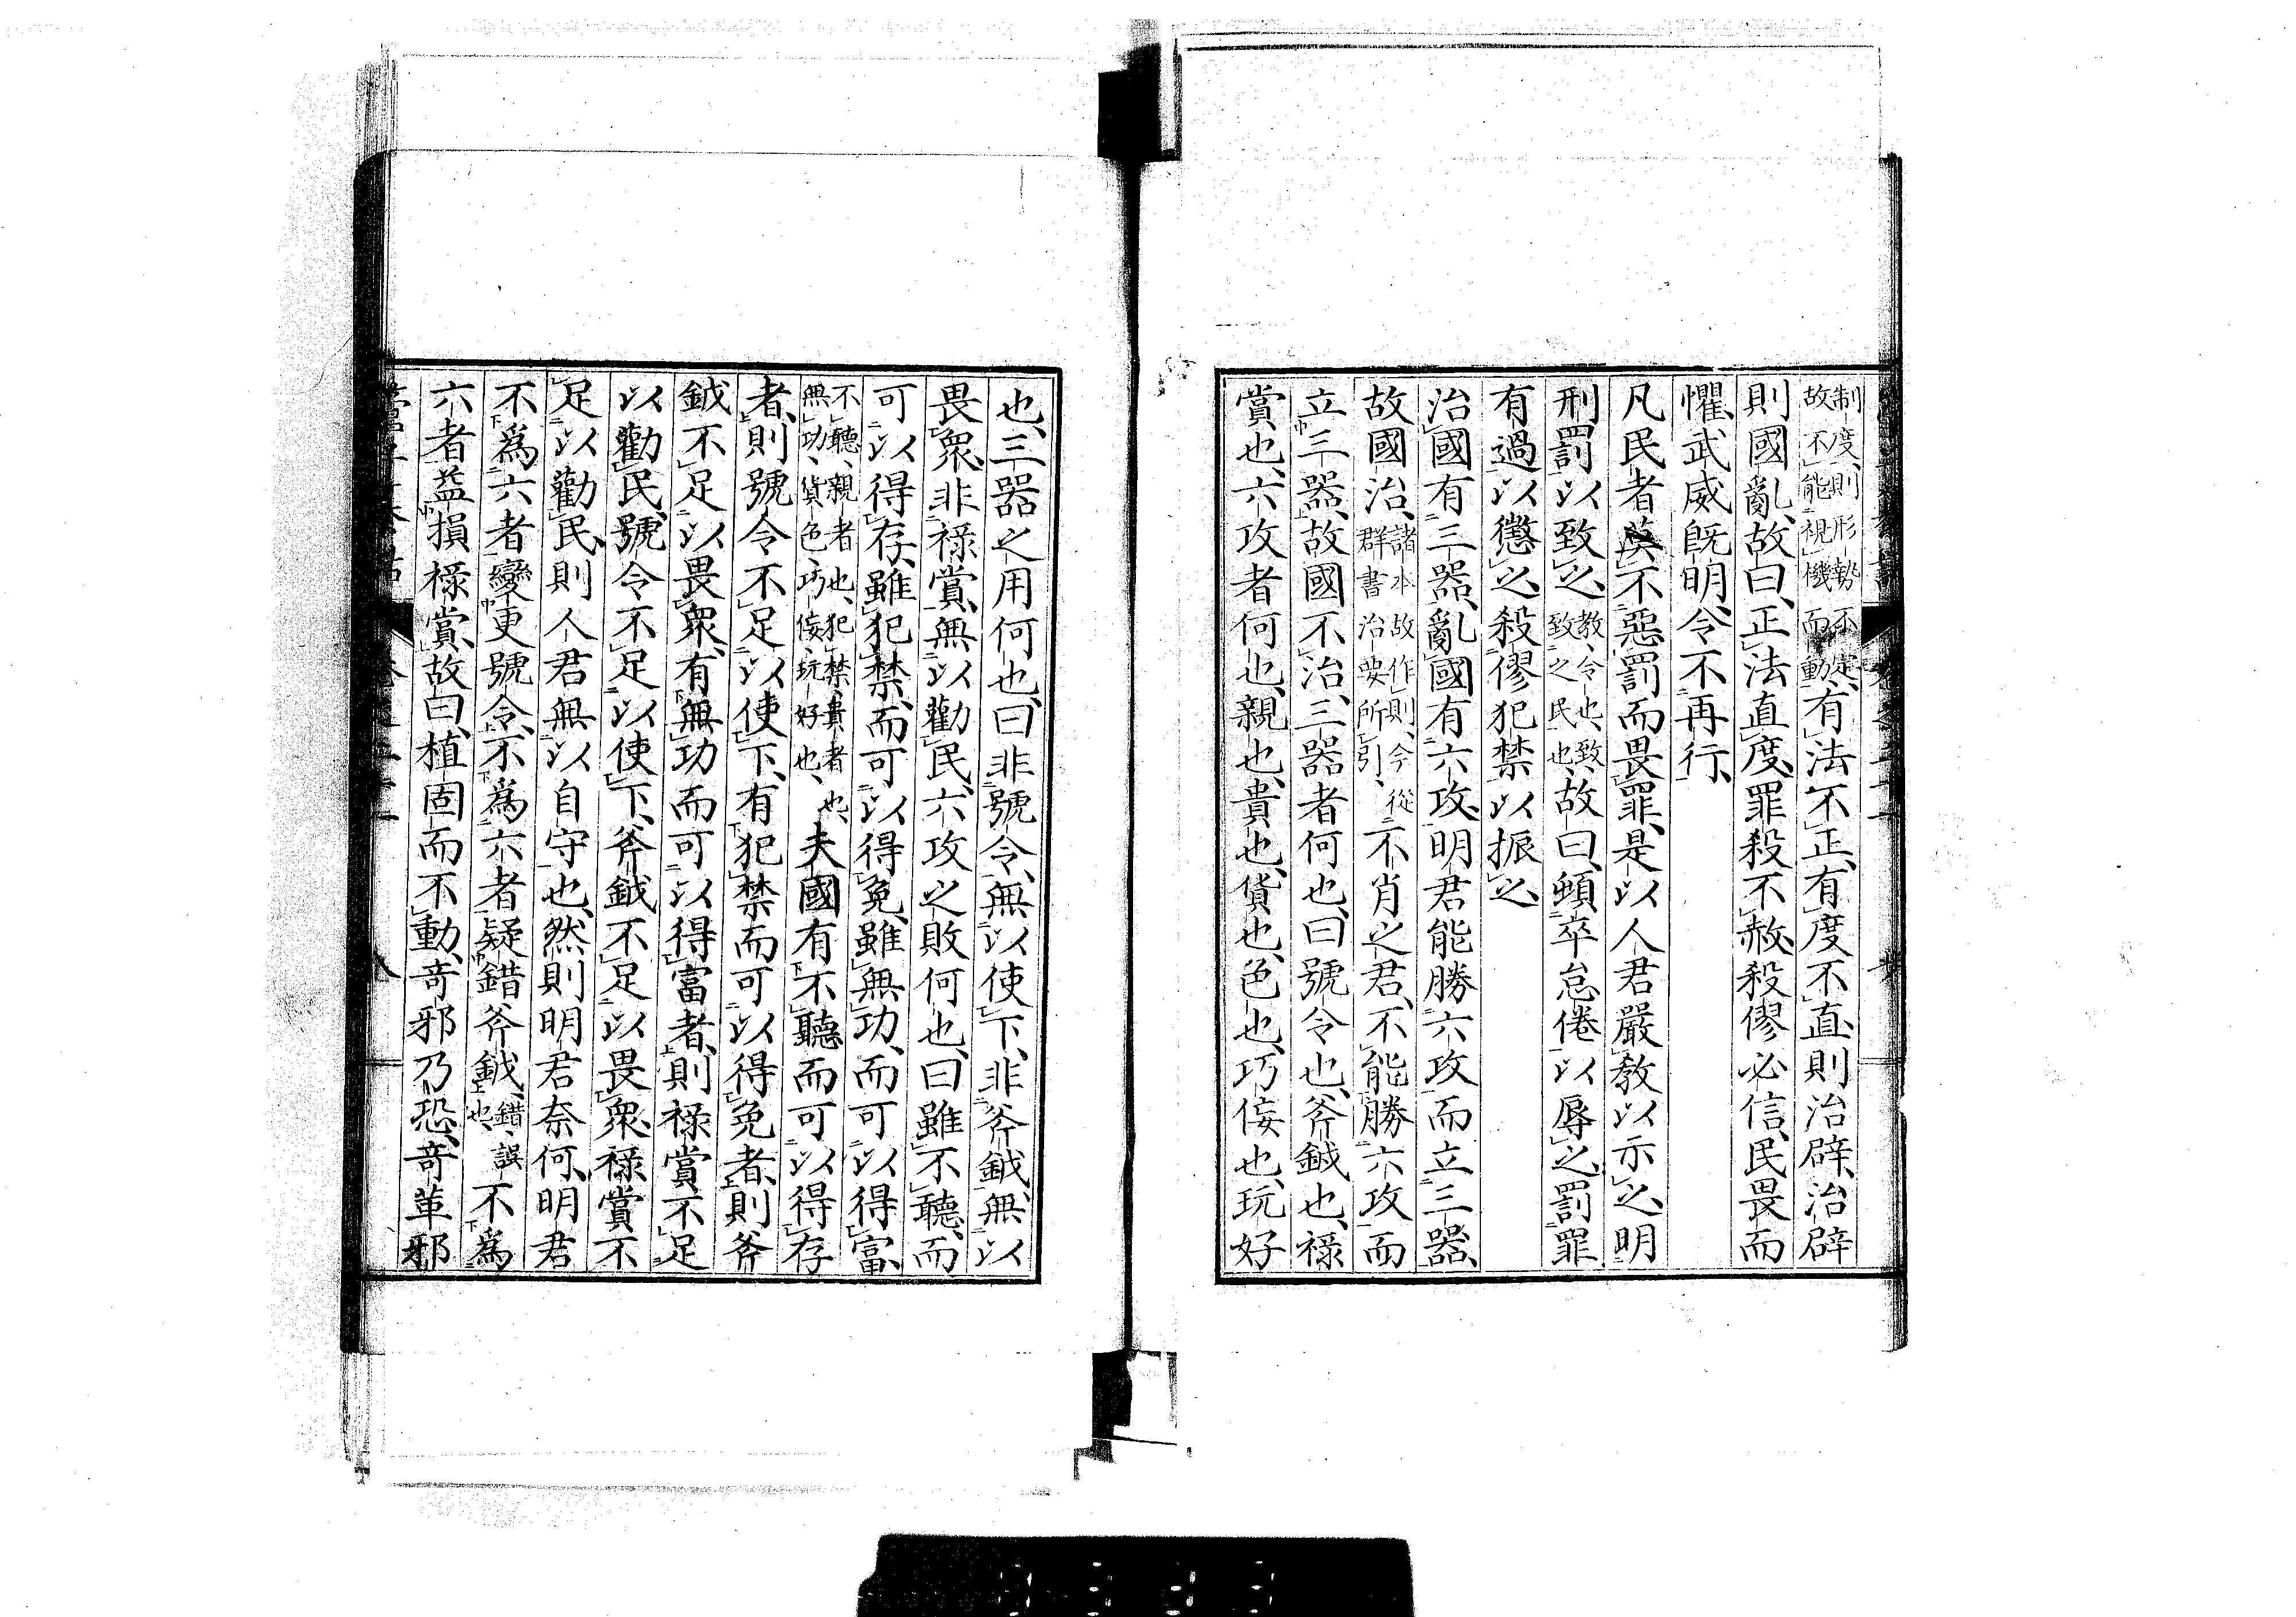 制度、則形勢不定、
故不能視機而動、有法不正、有度不直、則治辟、治辟
則國亂、故曰、正法直度、罪殺不赦、殺僇必信、民畏而
懼、武威既明、令不再行、
凡民者、莫不惡罰而畏罪、是以人君嚴教以示之、明
刑罰以致之、教、令也、致、
致之民也、故曰、頓卒怠倦以辱之、罰罪
有過以懲之、殺僇犯禁以振之、
治國有三器、亂國有六攻、明君能勝六攻而立三器、
故國治、諸本故作則、今從
群書治要所引、不肖之君、不能勝六攻而
立三器、故國不治、三器者何也、曰號令也、斧鉞也、祿
賞也、六攻者何也、親也、貴也、貨也、色也、巧佞也、玩好
也、三器之用何也、曰非號令、無以使下、非斧鉞、無以
畏衆、非祿賞、無以勸民、六攻之敗何也、曰雖不聽、而
可以得存、雖犯禁、而可以得免、雖無功、而可以得富、
不聽、親者也、犯禁、貴者也、
無功、貨色、巧佞、玩好也、夫國有不聽而可以得存
者、則號令不足以使下、有犯禁而可以得免者、則斧
鉞不足以畏衆、有無功而可以得富者、則祿賞不足
以勸民、號令不足以使下、斧鉞不足以畏衆、祿賞不
足以勸民、則人君無以自守也、然則明君奈何、明君
不爲六者變更號令、不爲六者疑錯斧鉞、錯、誤
也、不爲
六者益損祿賞、故曰、植固而不動、奇邪乃恐、奇革邪